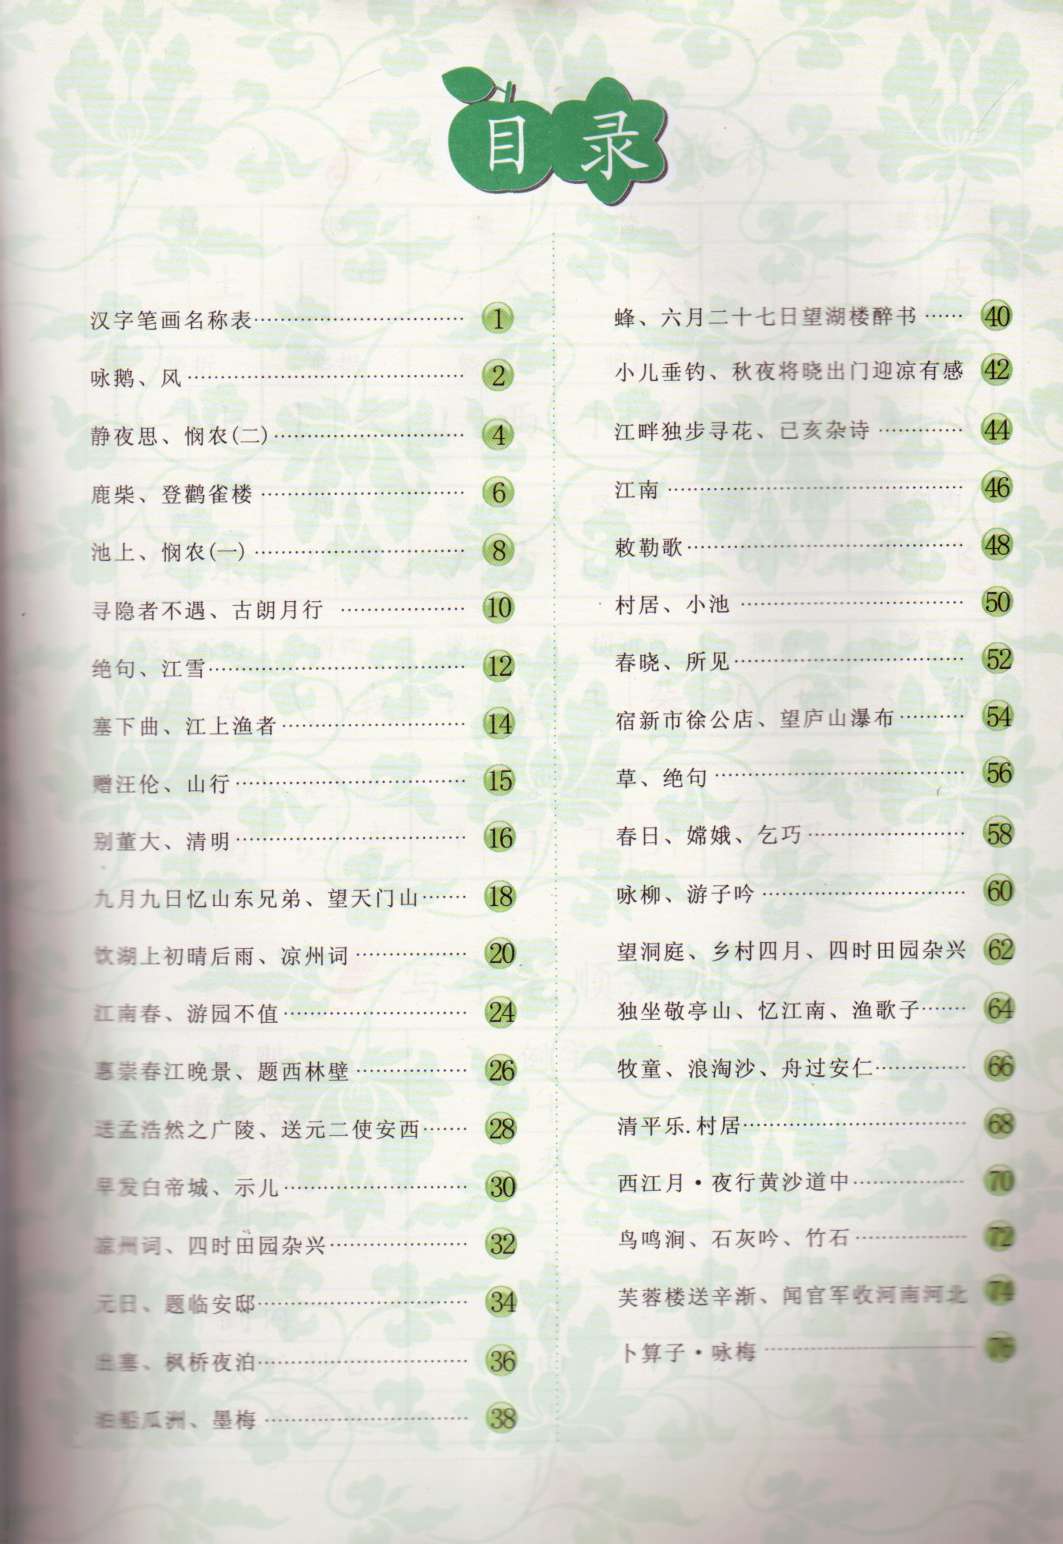 目录
汉字笔画名称表……………………………1
咏鹅、风……………………………2
静夜思、悯农(二)……………………………4
鹿柴、登鹳雀楼……………………………6
池上、悯农(一)……………………………8
寻隐者不遇、古朗月行………………10
绝句、江雪……………………………12
塞下曲、江上渔者……………………14
赠汪伦、山行……………………………15
别董大、清明……………………………16
九月九日忆山东兄弟、望天门山……18
饮湖上初晴后雨、凉州词……………20
江南春、游园不值……………………24
惠崇春江晚景、题西林壁……………26
送孟浩然之广陵、送元二使安西……28
早发白帝城、示儿……………………30
凉州词、四时田园杂兴………………32
元日、题临安邸………………………34
出塞、枫桥夜泊………………………36
泊船瓜洲、墨梅………………………38
蜂、六月二十七日望湖楼醉书……40
小儿垂钓、秋夜将晓出门迎凉有感 42
江畔独步寻花、己亥杂诗…………44
江南……………………………46
敕勒歌……………………………48
村居、小池……………………………50
春晓、所见……………………………52
宿新市徐公店、望庐山瀑布………54
草、绝句……………………………56
春日、嫦娥、乞巧……………………58
咏柳、游子吟……………………………60
望洞庭、乡村四月、四时田园杂兴 62
独坐敬亭山、忆江南、渔歌子……64
牧童、浪淘沙、舟过安仁…………66
清平乐.村居……………………………68
西江月·夜行黄沙道中……………70
鸟鸣涧、石灰吟、竹石……………72
芙蓉楼送辛渐、闻官军收河南河北 74
卜算子·咏梅……………………………76